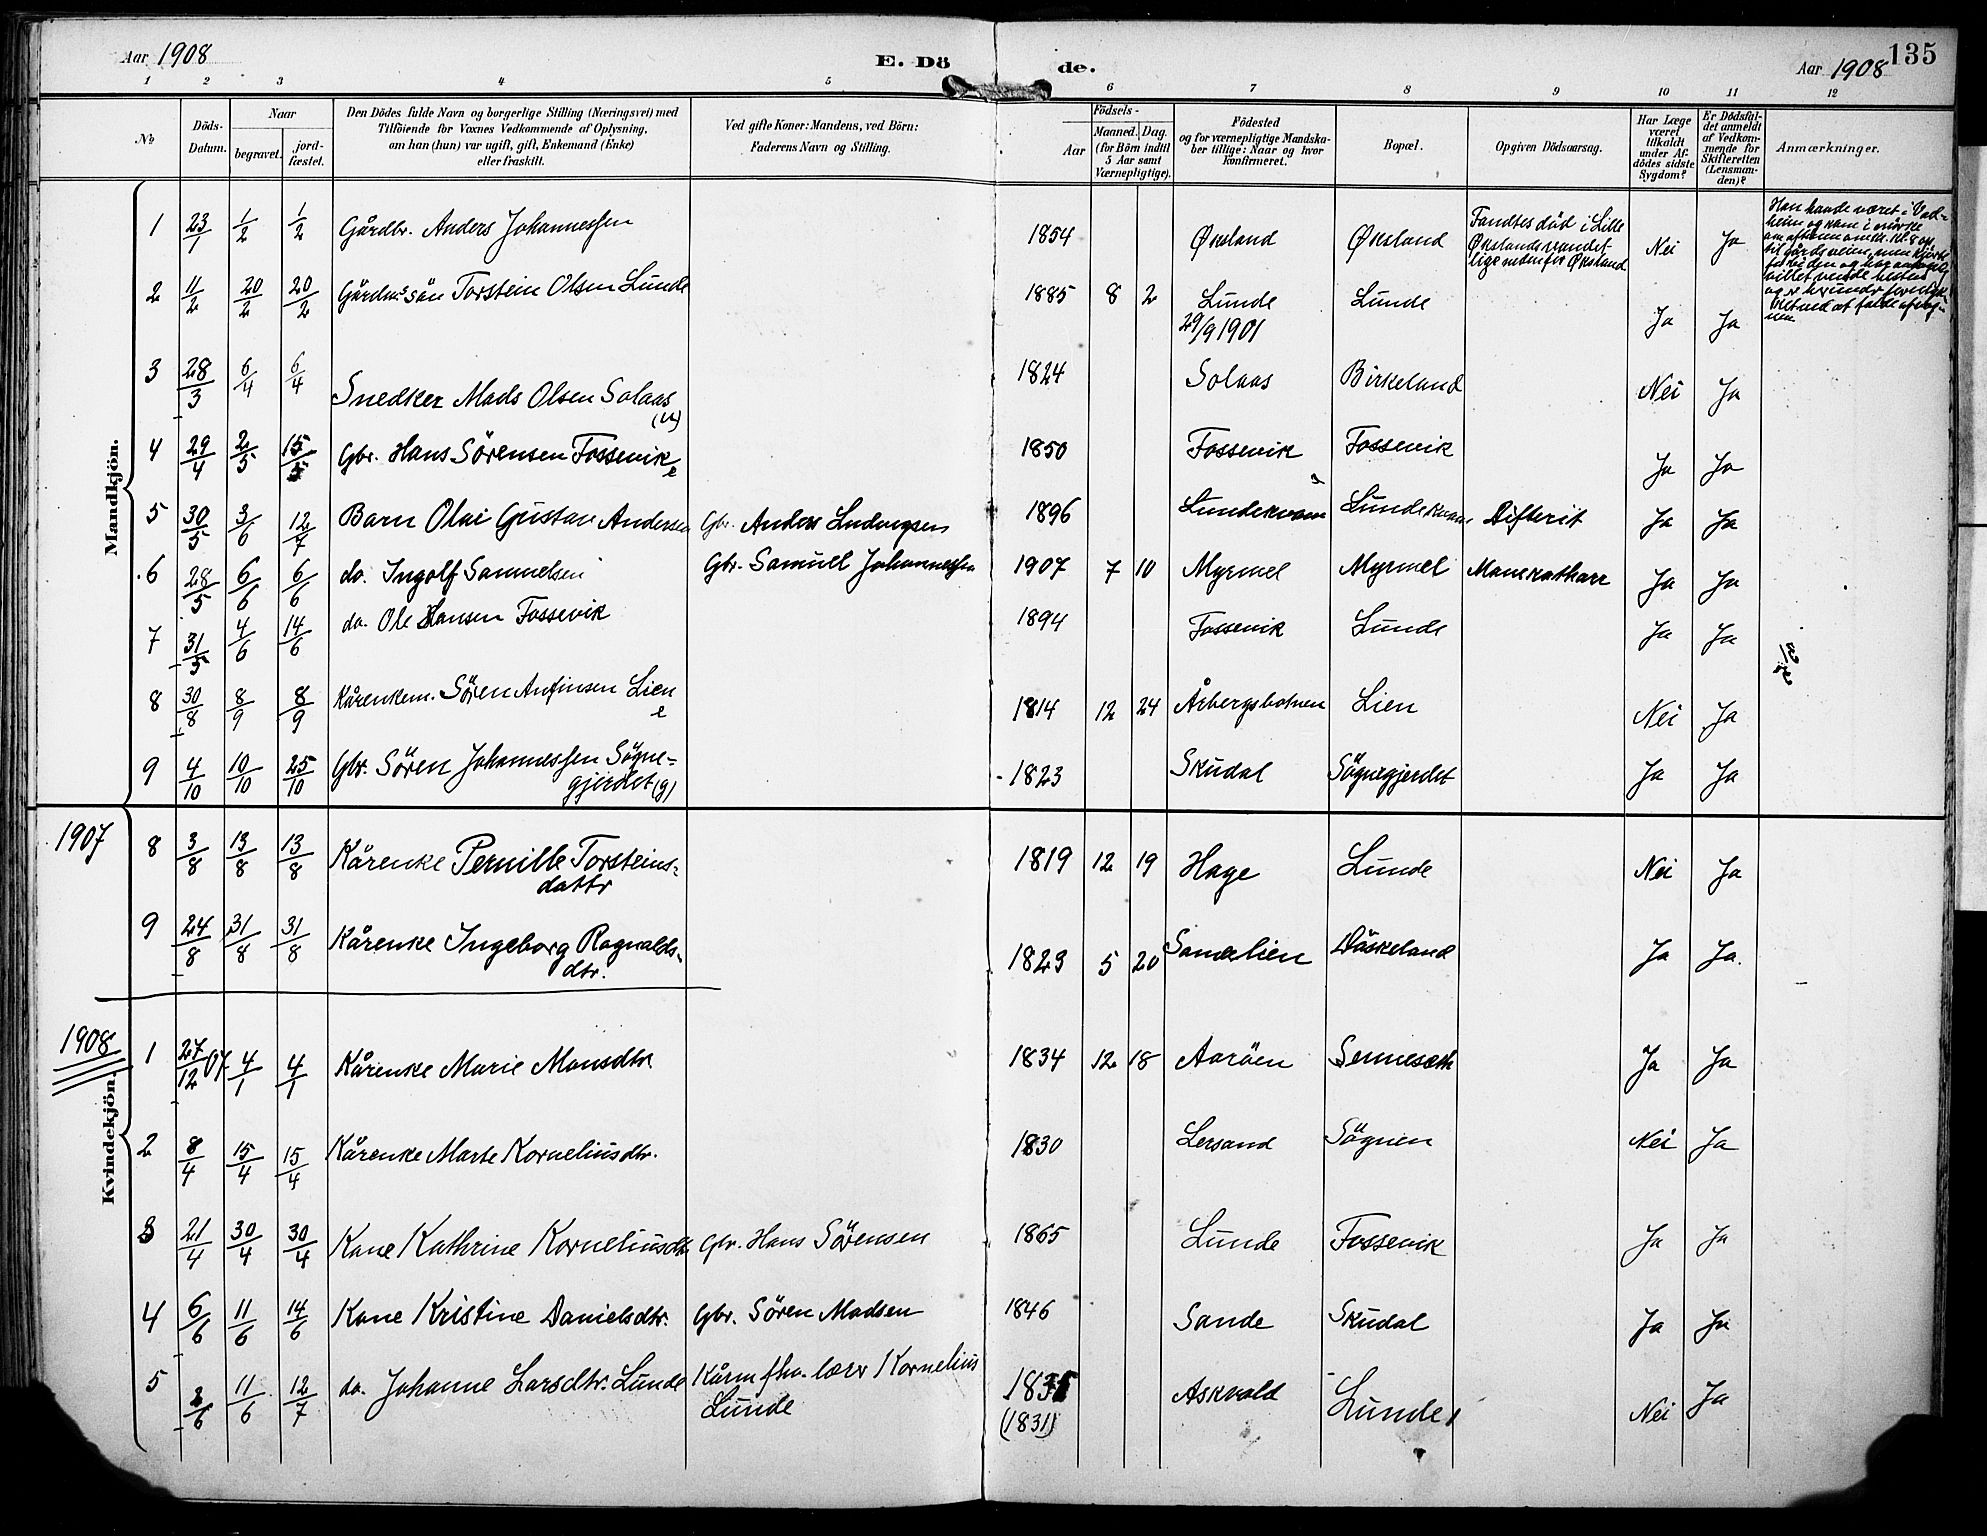 Aar 1908 E. Dö de. Aar 1908 135
1 2 3 4 5 6 7 8 9 10 11 12
No
Döds-Datum.
Naar
begravet.
jord-fæstet.
Den Dödes fulde Navn og borgerlige Stilling (Næringsvei) med
Tilföiende for Voxnes Vedkommende af Oplysning,
om han (hun) var ugift, gift, Enkemand (Enke)
eller fraskilt.
Ved gifte Koner: Mandens, ved Börn:
Faderens Navn og Stilling.
Födsels-
Aar
Maaned. Dag.
(for Börn indtil
5 Aar samt
Værnepligtige).
Födested
og for værnepligtige Mandska-
ber tillige: Naar og hvor
konfirmeret.
Bopæl.
Opgiven Dödsaarsag.
Har Læge
været
tilkaldt
under Af-
dödes sidste
Sygdom?
Er Dödsfal-
det anmeldt
af Vedkom-
mende for
Skifteretten
(Lensman-
den)?
Anmærkninger.
Mandkjön.
1 23/1 1/2 1/2 Gårdbr. Anders Johannessen 1854 Øksland Øksland Fandtes död i Lille Økslandsvandet lige nedenfor Øksland Nei Ja
Han havde været i Vad-
heim og kom i mörke
om aftenen omkr. kl. 8 op
2 11/2 20/2 20/2 Gårdms sön Torstein Olsen Lunde 1885 8 2 Lunde 29/9 1901 Lunde Ja Ja
3 28/3 6/4 6/4 Snedker Mads Olsen Solaas (u) 1824 Solaas Birkeland Nei Ja
4 29/4 2/5 15/5 Gbr. Hans Sörensen Fossevik e 1850 Fossevik Fossevik Ja Ja
5 30/5 3/6 12/7 Barn Olai Gustav Andersen Gbr. Anders Ludvigsen 1896 Lundekvam Lundekvam Difterit Ja Ja
6 28/5 6/6 6/6 do. Ingolf Samuelsen Gbr. Samuel Johannessen 1907 7 10 Myrmel Myrmel Mavekatharr Ja Ja
7 31/5 4/6 14/6 do. Ole Hansen Fossevik 1894 Fossevik Lunde Ja Ja
8 30/8 8/9 8/9 Kårenkem. Sören Anfinsen Lien e 1814 12 24 Årbergsbotnen Lien Nei Ja
9 4/10 10/10 25/10 Gbr. Sören Johannessen Sögne-
gjerdet (g) 1823 Skudal Sögnegjerdet Ja Ja
1907
8 3/8 13/8 13/8 Kårenke Pernille Torsteins-
dattr 1819 12 19 Hage Lunde Nei Ja
9 24/8 31/8 31/8 Kårenke Ingeborg Ragnvalds-
dtr. 1823 5 20 Samelien Våskeland Ja Ja.
1908
Kvindekjön.
1 27/12 07 4/1 4/1 Kårenke Marie Monsdtr 1834 12 18 Aaröen Ja Ja
2 8/4 15/4 15/4 Kårenke Marte Korneliusdtr. 1830 Lersand Sögnen Nei Ja
3 21/4 30/4 30/4 Kone Kathrine Korneliusdtr Gbr. Hans Sörensen 1865 Lunde Fossevik Ja Ja
4 6/6 11/6 14/6 Kone Kristine Danielsdtr. Gbr. Sören Madsen 1846 Sande Skudal Ja Ja
5 2/6 11/6 12/7 do. Johanne Larsdtr. Lunde Kårm fhv. lærer Kornelius
Lunde 1835
(1831) Askvold Lunde Nei Ja